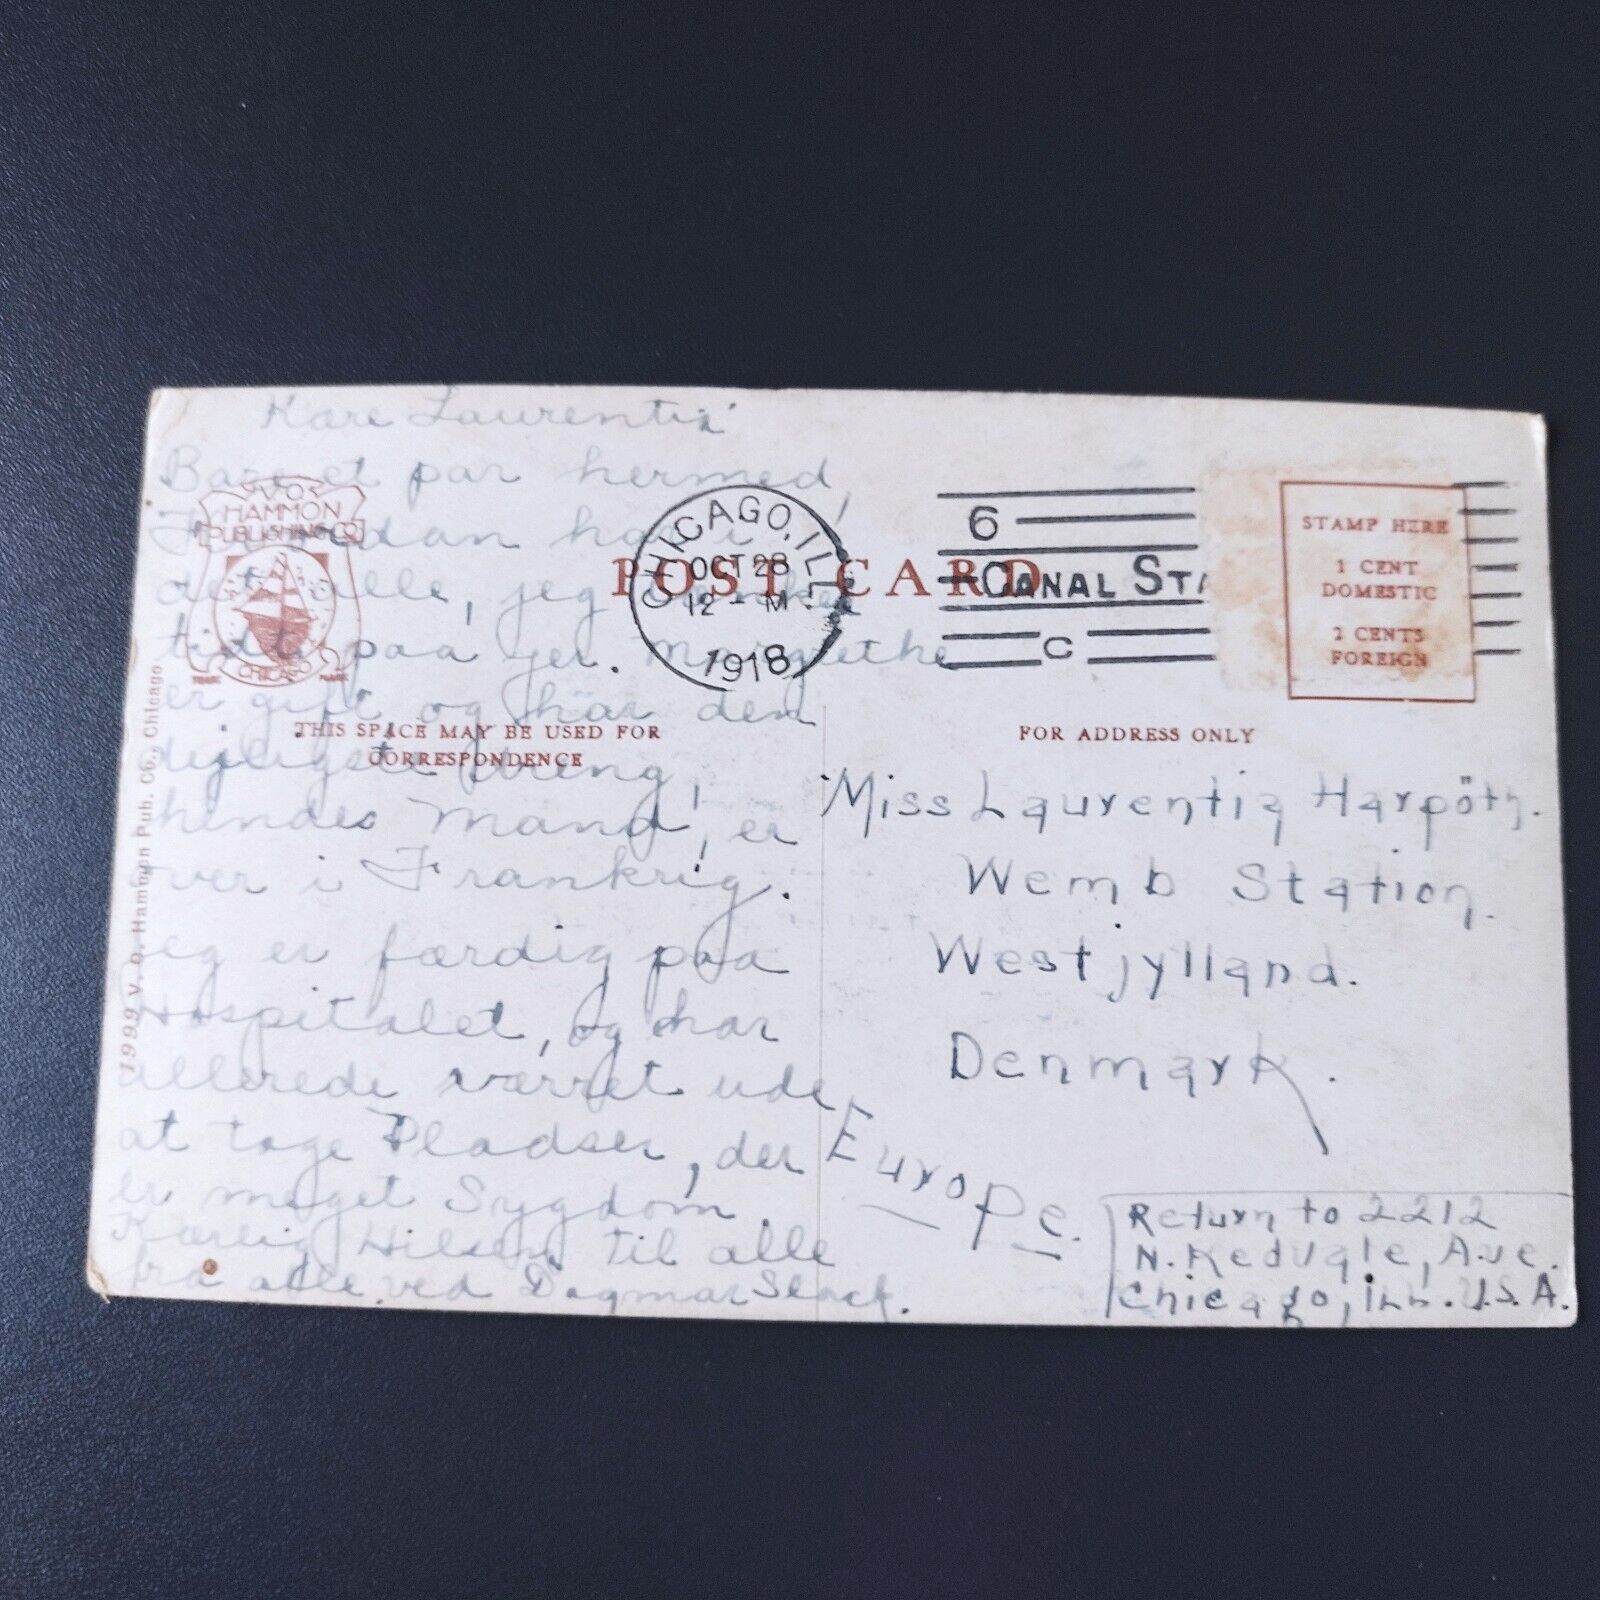 Kære Laurentia
Bare et par hermed,
har i
det alle, jeg
tidt paa jer. Margrethe
er gift og har den
dejligste Dreng,
hendes Mand, er
over i Frankrig.
Jeg er færdig paa
Hospitalet, og har
allerede værret ude
at tage Pladser, der
er meget Sygdom.
Kærlig Hilsen til alle
fra alle ved Dagmar Slack.
V.O. HAMMON PUBLISHING CO.
CHICAGO
TRADE MARK
19999 V. O. Hammon Pub. Co., Chicago
POST CARD
THIS SPACE MAY BE USED FOR
CORRESPONDENCE
CHICAGO, ILL.
OCT 28
12 - M
1918
6
CANAL STA
C
STAMP HERE
1 CENT
DOMESTIC
2 CENTS
FOREIGN
FOR ADDRESS ONLY
Miss Laurentia Harpöth.
Wemb Station.
Westjylland.
Denmark.
Europe.
Return to 2212
N. Kedvale, Ave.
Chicago, Ill. U.S.A.